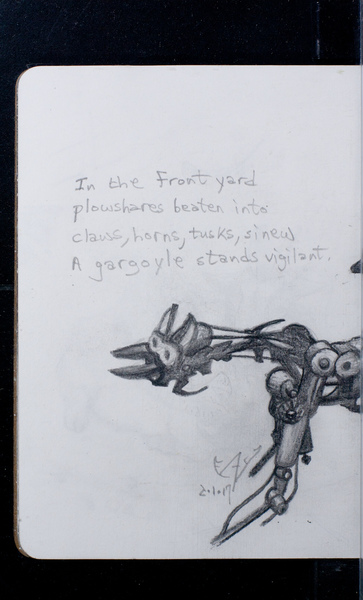 In the Front yard
plowshares beaten into
claws, horns, tusks, sinew
A gargoyle stands vigilant.
2.1.17